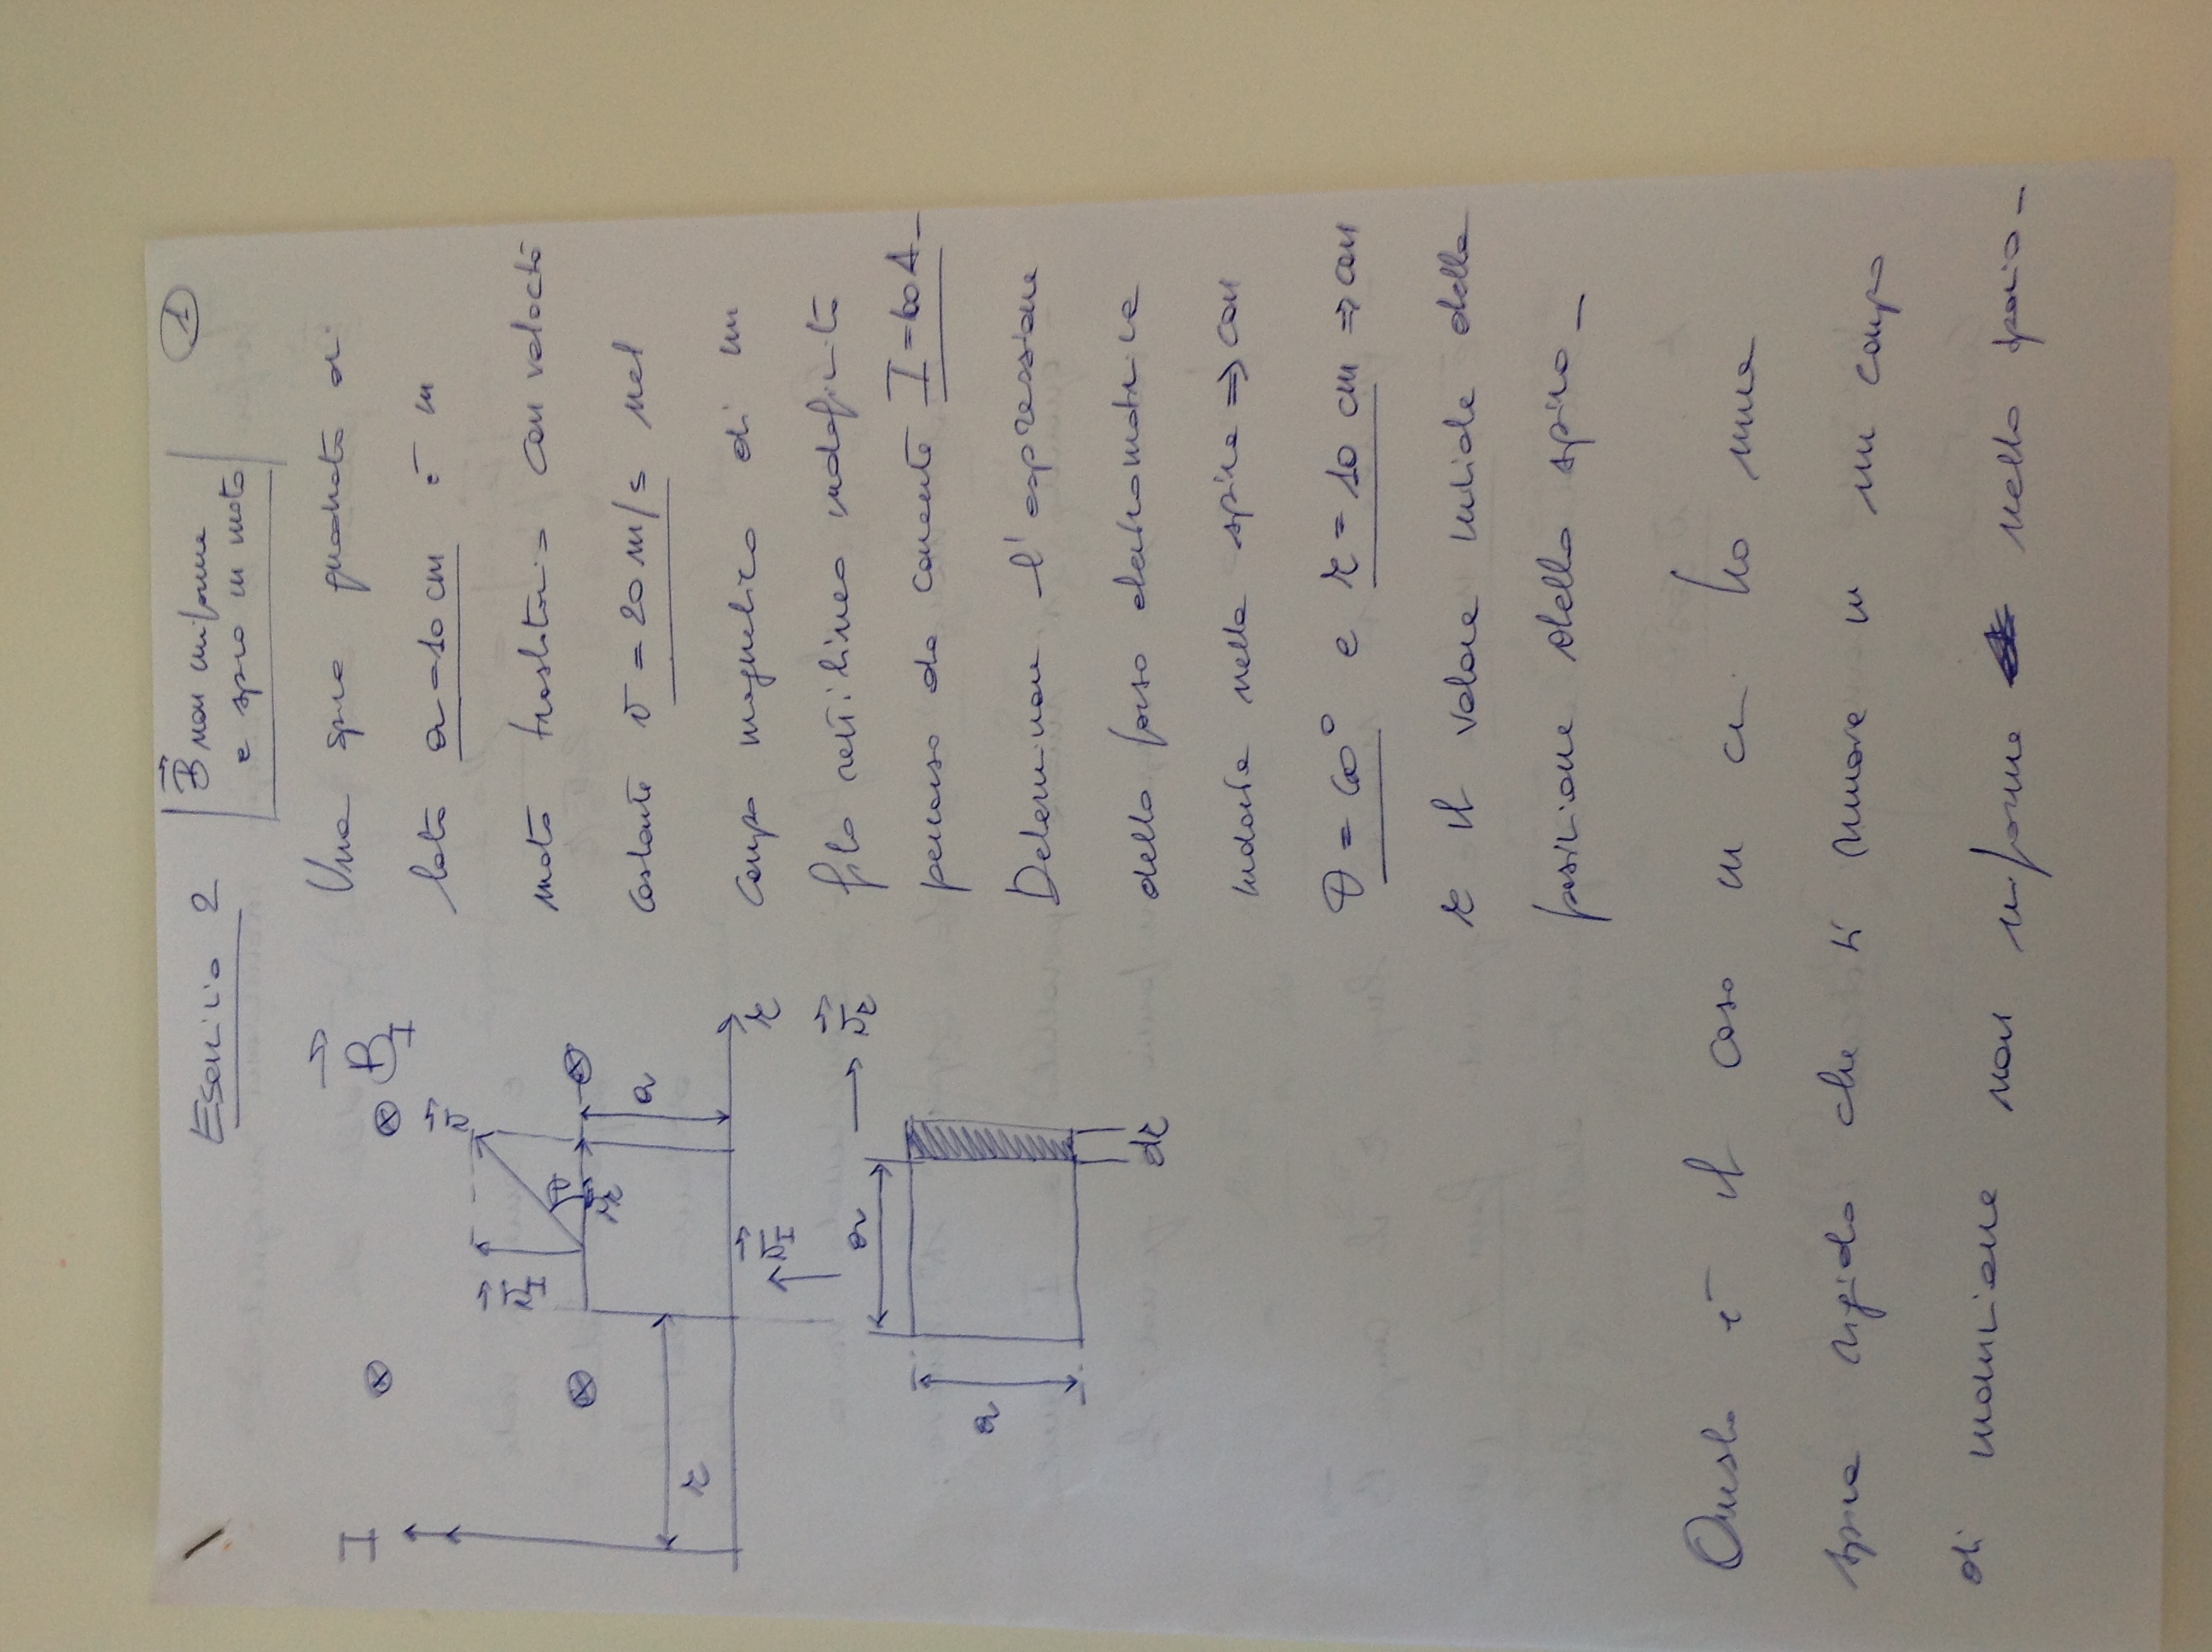 Esercizio 2
B non uniforme
e spira in moto
1
I
B_I
Una spira quadrata di
v
lato a = 10 cm è in
v_I
θ
moto traslatorio con velocità
v_r
a
costante v = 20 m/s nel
r
campo magnetico di un
v_I
r
filo rettilineo indefinito
a
v_r
percorso da corrente I = 60 A_
a
Determinare l'espressione
della forza elettromotrice
dr
indotta nella spira ⇒ con
θ = 60° e r = 10 cm ⇒ con
r il valore iniziale della
posizione della spira_
Questo è il caso in cui ho una
spira rigida che si muove in un campo
di induzione non uniforme nello spazio_